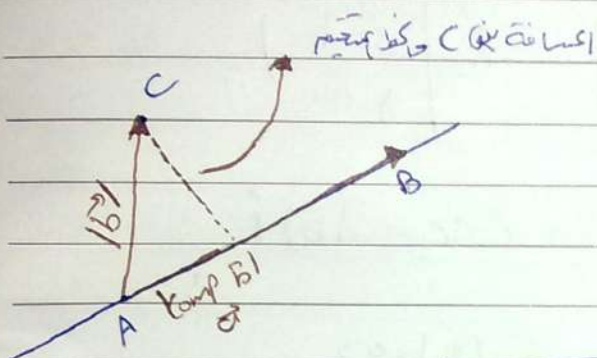 المسافة بين C والخط المستقيم
C
|b|
B
|comp b|
a
A